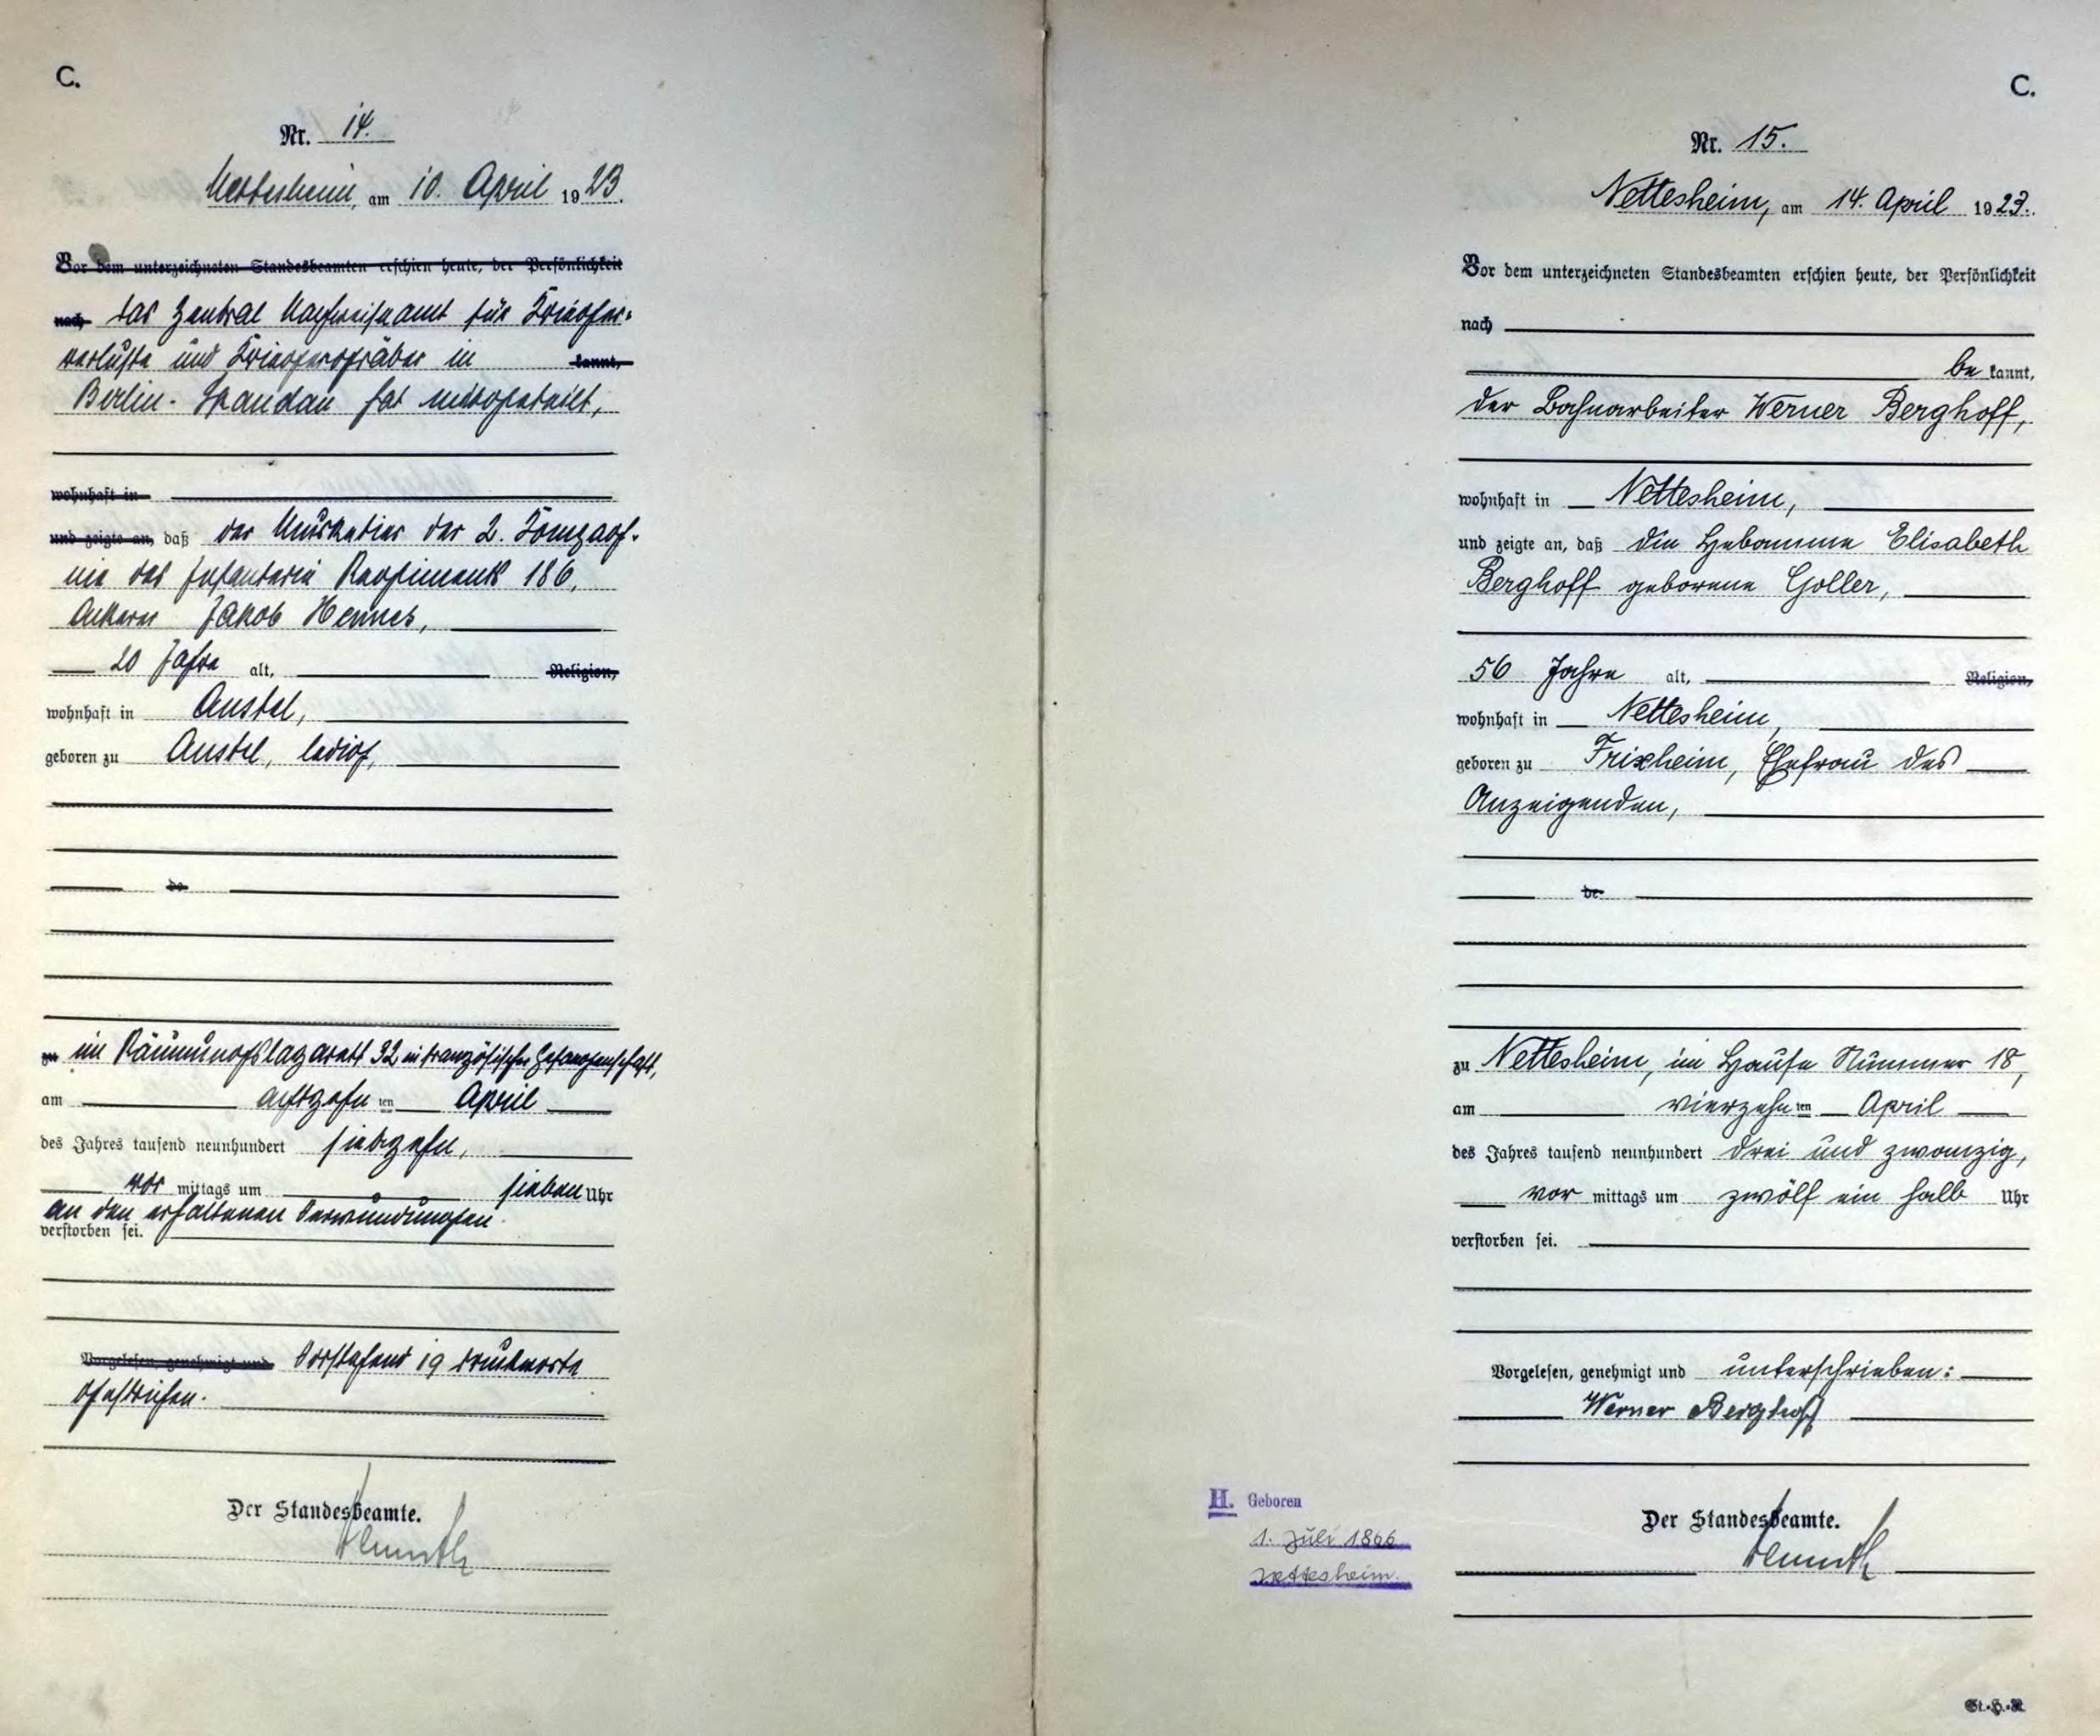 C.
Nr. 14.
Nettesheim, am 10. April 1923.
Vor dem unterzeichneten Standesbeamten erschien heute, der Persönlichkeit
nach das Zentral Nachweiseamt für Krieger-
verluste und Kriegergräber in kannt,
Berlin-Spandau hat mitgeteilt,
wohnhaft in
und zeigte an, daß der Musketier der 2. Kompag-
nie des Infanterie Regiments 186,
Ackerer Jakob Hennes,
20 Jahre alt, Religion,
wohnhaft in Anstel,
geboren zu Anstel, ledig,
de
zu im Räumungslazarett 32 in französischer Gefangenschaft,
am achtzehnten April
des Jahres tausend neunhundert siebzehn,
vor mittags um sieben Uhr
an den erhaltenen Verwundungen
verstorben sei.
Vorgelesen, genehmigt und Vorstehend 19 Druckworte
gestrichen.
Der Standesbeamte.
C.
Nr. 15.
Nettesheim, am 14. April 1923.
Vor dem unterzeichneten Standesbeamten erschien heute, der Persönlichkeit
nach
be kannt,
der Bahnarbeiter Werner Berghoff,
wohnhaft in Nettesheim,
und zeigte an, daß die Hebamme Elisabeth
Berghoff geborene Goller,
56 Jahre alt, Religion,
wohnhaft in Nettesheim,
geboren zu Frixheim, Ehefrau des
Anzeigenden,
de
zu Nettesheim, im Hause Nummer 18,
am vierzehnten April
des Jahres tausend neunhundert drei und zwanzig,
vor mittags um zwölf ein halb Uhr
verstorben sei.
Vorgelesen, genehmigt und unterschrieben:
Werner Berghoff
Der Standesbeamte.
H. Geboren
1. Juli 1866
Nettesheim.
St.-H.-R.